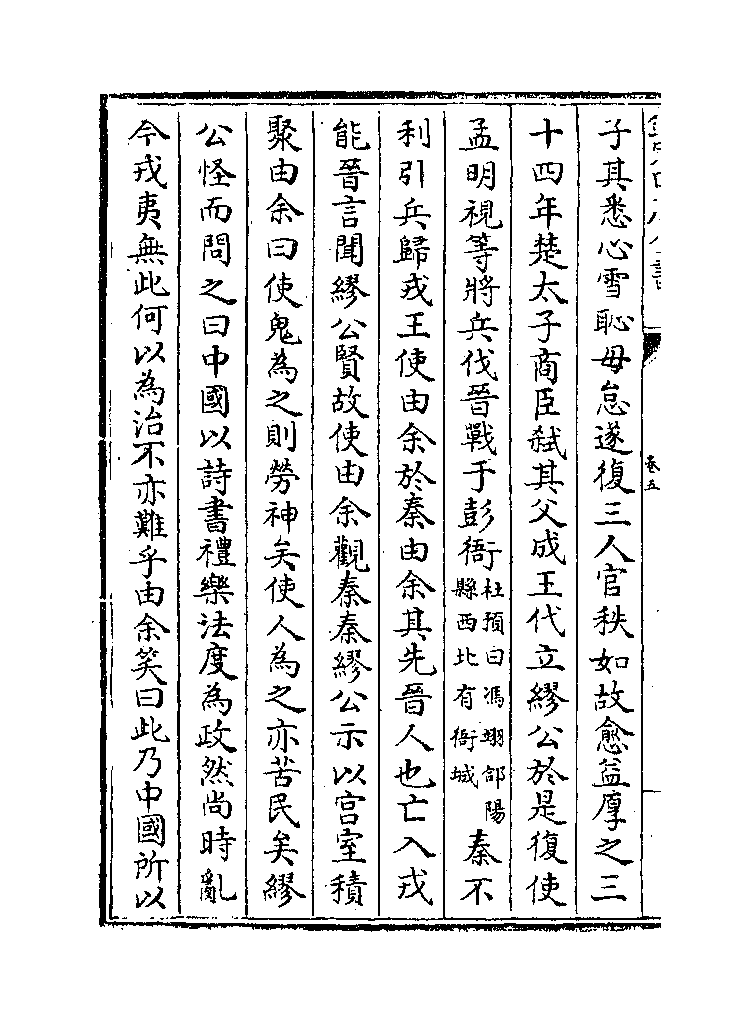 子其悉心雪恥毋怠遂復三人官秩如故愈益厚之三
十四年楚太子商臣弑其父成王代立繆公於是復使
孟明視等將兵伐晉戰于彭衙杜預曰馮翊郃陽縣西北有衙城秦不
利引兵歸戎王使由余於秦由余其先晉人也亡入戎
能晉言聞繆公賢故使由余觀秦秦繆公示以宫室積
聚由余曰使鬼為之則勞神矣使人為之亦苦民矣繆
公怪而問之曰中國以詩書禮樂法度為政然尚時亂
今戎夷無此何以為治不亦難乎由余笑曰此乃中國所以
卷五